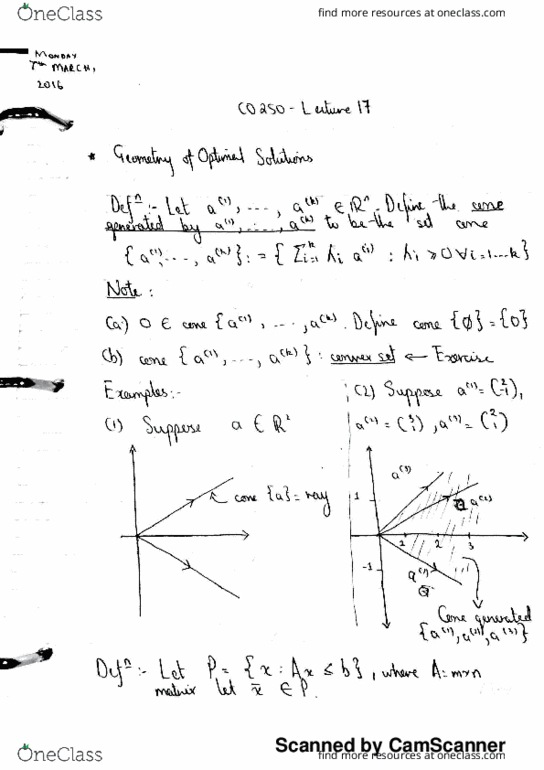 OneClass
find more resources at oneclass.com
MONDAY
7th MARCH,
2016
CO250 - Lecture 17
* Geometry of Optimal Solutions
Defⁿ :- Let a⁽¹⁾, ..., a⁽ᵏ⁾ ∈ ℝⁿ. Define the cone
generated by a⁽¹⁾, ..., a⁽ᵏ⁾ to be the set cone
{a⁽¹⁾, ..., a⁽ᵏ⁾} := { Σᵢ₌₁ᵏ λᵢ a⁽ⁱ⁾ : λᵢ ≥ 0 ∀ i=1...k}
Note :
(a) 0 ∈ cone {a⁽¹⁾, ..., a⁽ᵏ⁾. Define cone {∅} = {0}
(b) cone {a⁽¹⁾, ..., a⁽ᵏ⁾} : convex set ← Exercise
Examples :-
(1) Suppose a ∈ ℝ²
cone {a} = ray
(2) Suppose a⁽¹⁾ = (2 -1),
a⁽²⁾ = (3 1), a⁽³⁾ = (2 1)
a⁽³⁾
1
a⁽²⁾
1 2 3
-1
a⁽¹⁾
Cone generated
{a⁽¹⁾, a⁽²⁾, a⁽³⁾}
Defⁿ :- Let P = {x : Ax ≤ b}, where A = m×n
matrix let x̄ ∈ P.
Scanned by CamScanner
OneClass
find more resources at oneclass.com